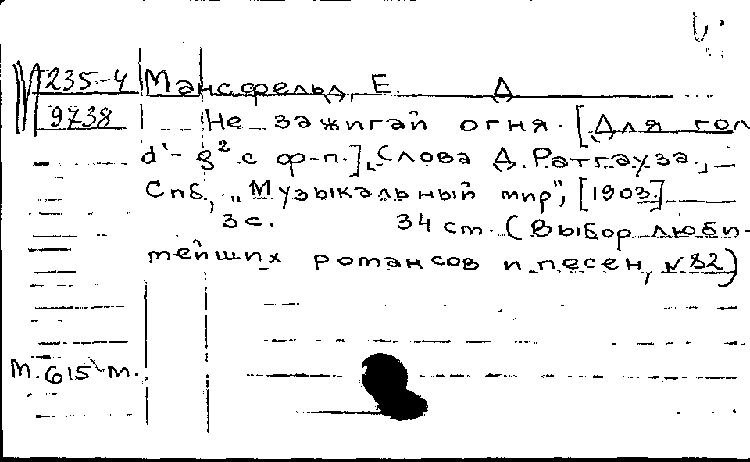 М 235-4 Мансфельд, Е. Д
9738 Не зажигай огня. [Для гол
d¹-g² с ф-п.], Слова Д. Ратгауза.
Спб, "Музыкальный мир", [1903.]
3 с. 34 ст. (Выбор люби-
мейших романсов и песен, №82)
М. 615-М.